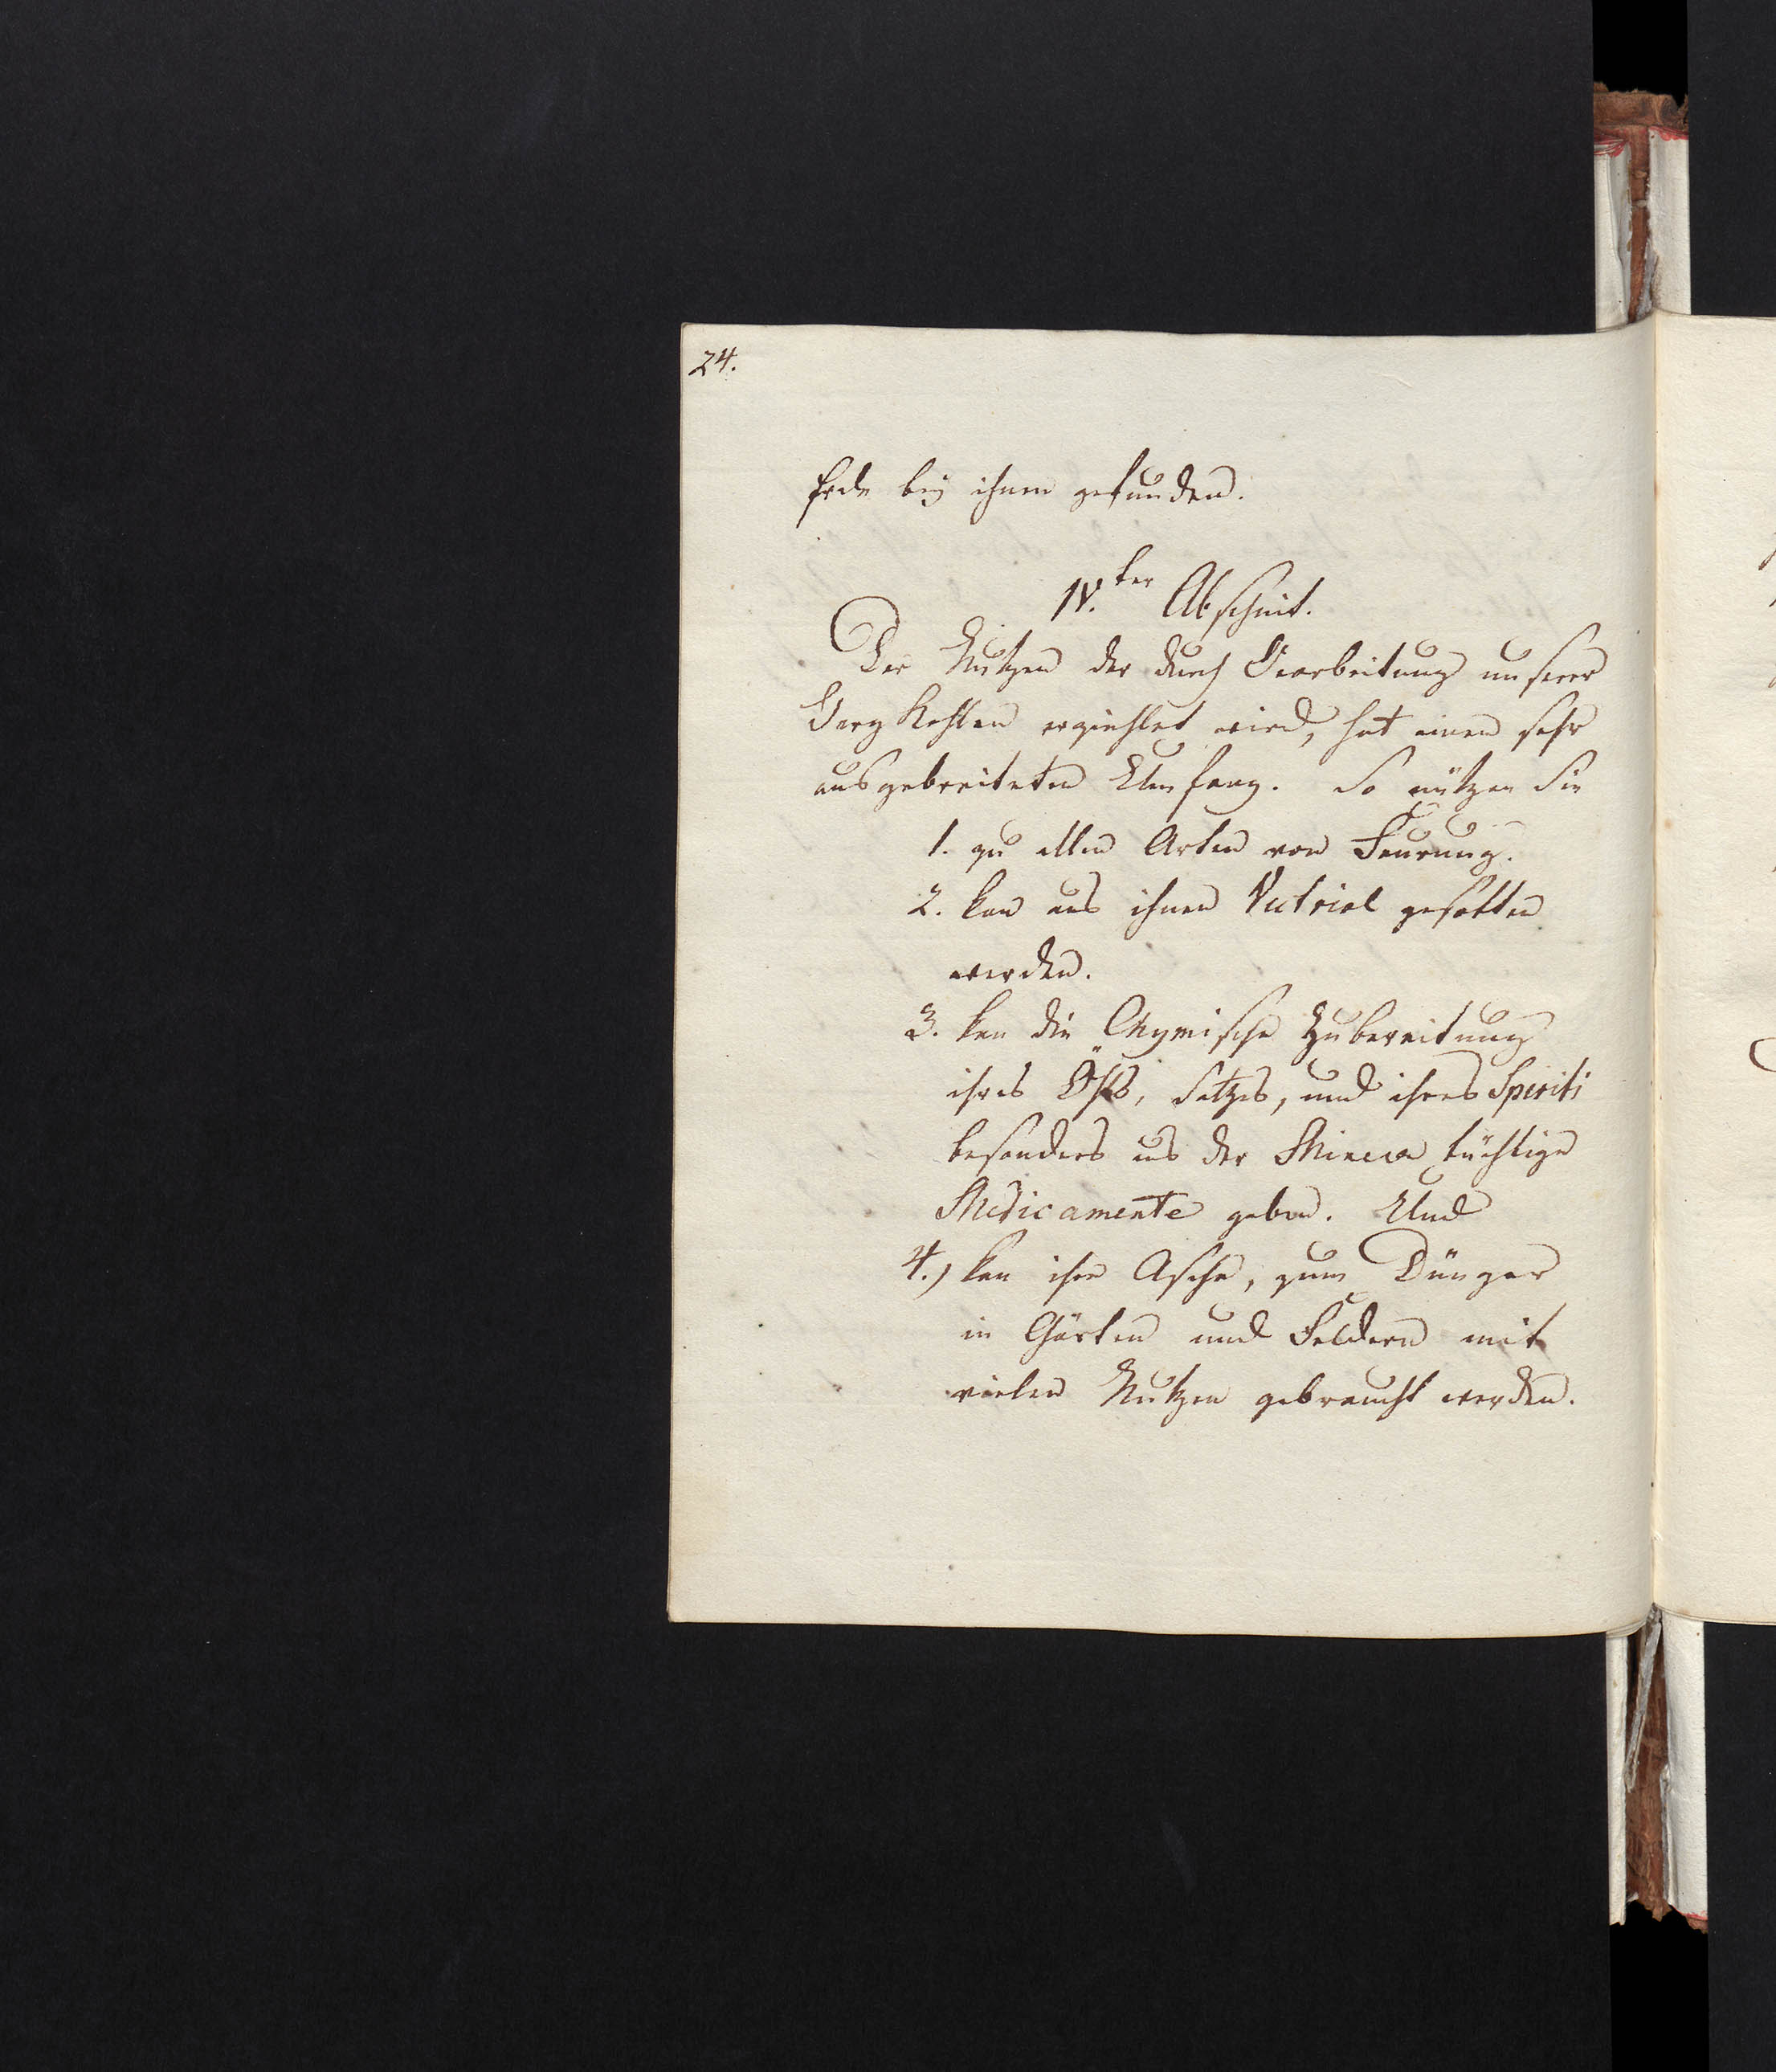 24.
Erde bey ihnen gefunden.
IV.ter Abschnit.
Der Nutzen der durch Bearbeitung unserer
Berg Kohlen erziehlet wird, hat einen sehr
ausgebreiteten Umfang. So nützen Sie
1. zu allen Arten von Feurung.
2. kan aus ihnen Victriol gesotten
werden.
3. kan die Chymische Zubereitung
ihres Öhls, Saltzes, und ihres Spiriti
besonders aus der Minera tüchtige
Medicamente geben. Und
4.) kan ihre Asche, zum Dünger
in Gärten und Feldern mit
vielen Nutzen gebraucht werden.